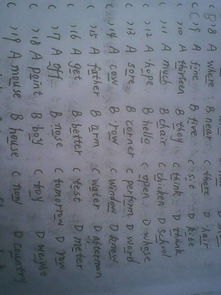 8 A where B near C there D hair
( ) 9 A fine B five C sit D kite
( ) 10 A thirteen B they C think D thank
( ) 11 A much B chair C chicken D school
( ) 12 A hope B hello C open D whose
( ) 13 A sore B corner C perform D word
( ) 14 A cow B row C window D know
( ) 15 A farther B arm C water D afternoon
( ) 16 A get B better C yeet D meter
( ) 17 A off B nose C tomorrow D row
( ) 18 A point B boy C toy D
( ) 19 A mouse B house C D country